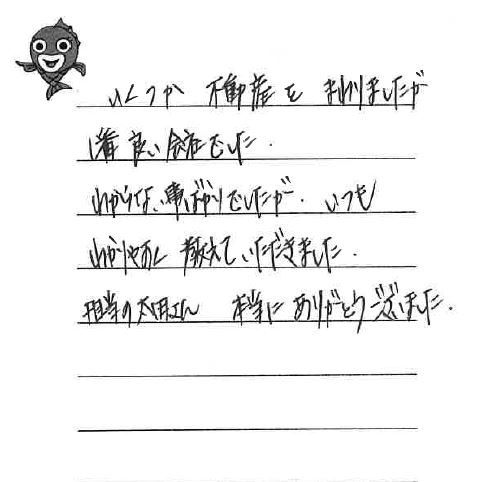 いくつか 不動産を まわりましたが
1番 良い会社でした.
わからない事ばかりでしたが. いつも
わかりやすく 教えていただきました.
担当の太田さん 本当に ありがとうございました.